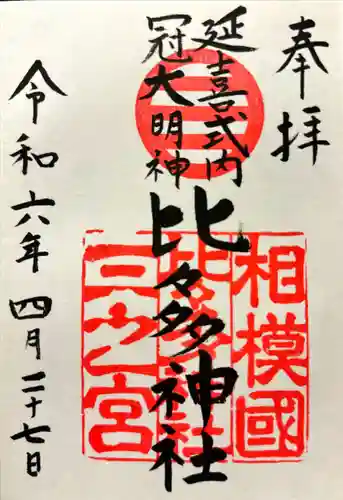 奉拝
延喜式内
冠大明神
比々多神社
相模國
比々多神社
三之宮
令和六年四月二十七日